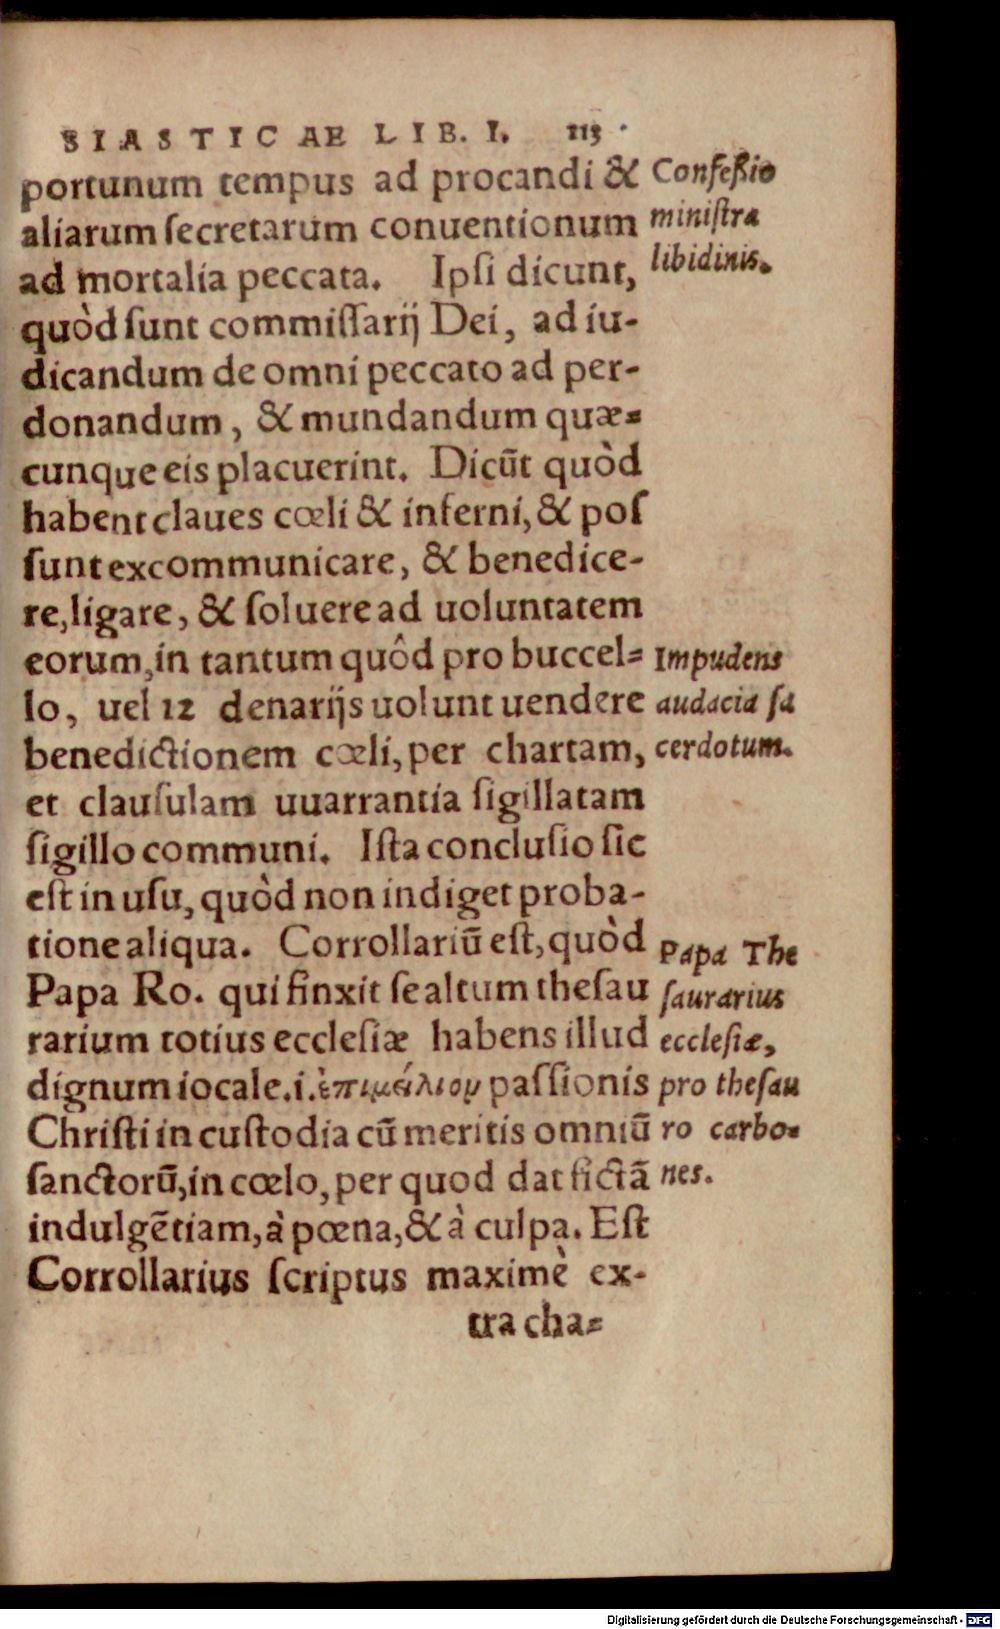 SIASTICAE LIB. I. 113
portunum tempus ad procandi &
aliarum secretarum conuentionum
ad mortalia peccata. Ipsi dicunt,
quòd sunt commissarij Dei, ad iu-
dicandum de omni peccato ad per-
donandum, & mundandum quæ=
cunque eis placuerint. Dicūt quòd
habent claues cœli & inferni, & pos
sunt excommunicare, & benedice-
re, ligare, & soluere ad uoluntatem
eorum, in tantum quôd pro buccel=
lo, uel 12 denarijs uolunt uendere
benedictionem cœli, per chartam,
et clausulam uuarrantia sigillatam
sigillo communi. Ista conclusio sic
est in usu, quòd non indiget proba-
tione aliqua. Corrollariū est, quòd
Papa Ro. qui finxit se altum thesau
rarium totius ecclesiæ habens illud
dignum iocale.i. ἐπιμείλιον passionis
Christi in custodia cū meritis omniū
sanctorū, in cœlo, per quod dat fictā
indulgētiam, à pœna, & à culpa. Est
Corrollarius scriptus maximè ex-
tra cha=
Confeßio
ministra
libidinis.
Impudens
audacia sa
cerdotum.
Papa The
saurarius
ecclesiæ,
pro thesau
ro carbo=
nes.
Digitalisierung gefördert durch die Deutsche Forschungsgemeinschaft - DFG